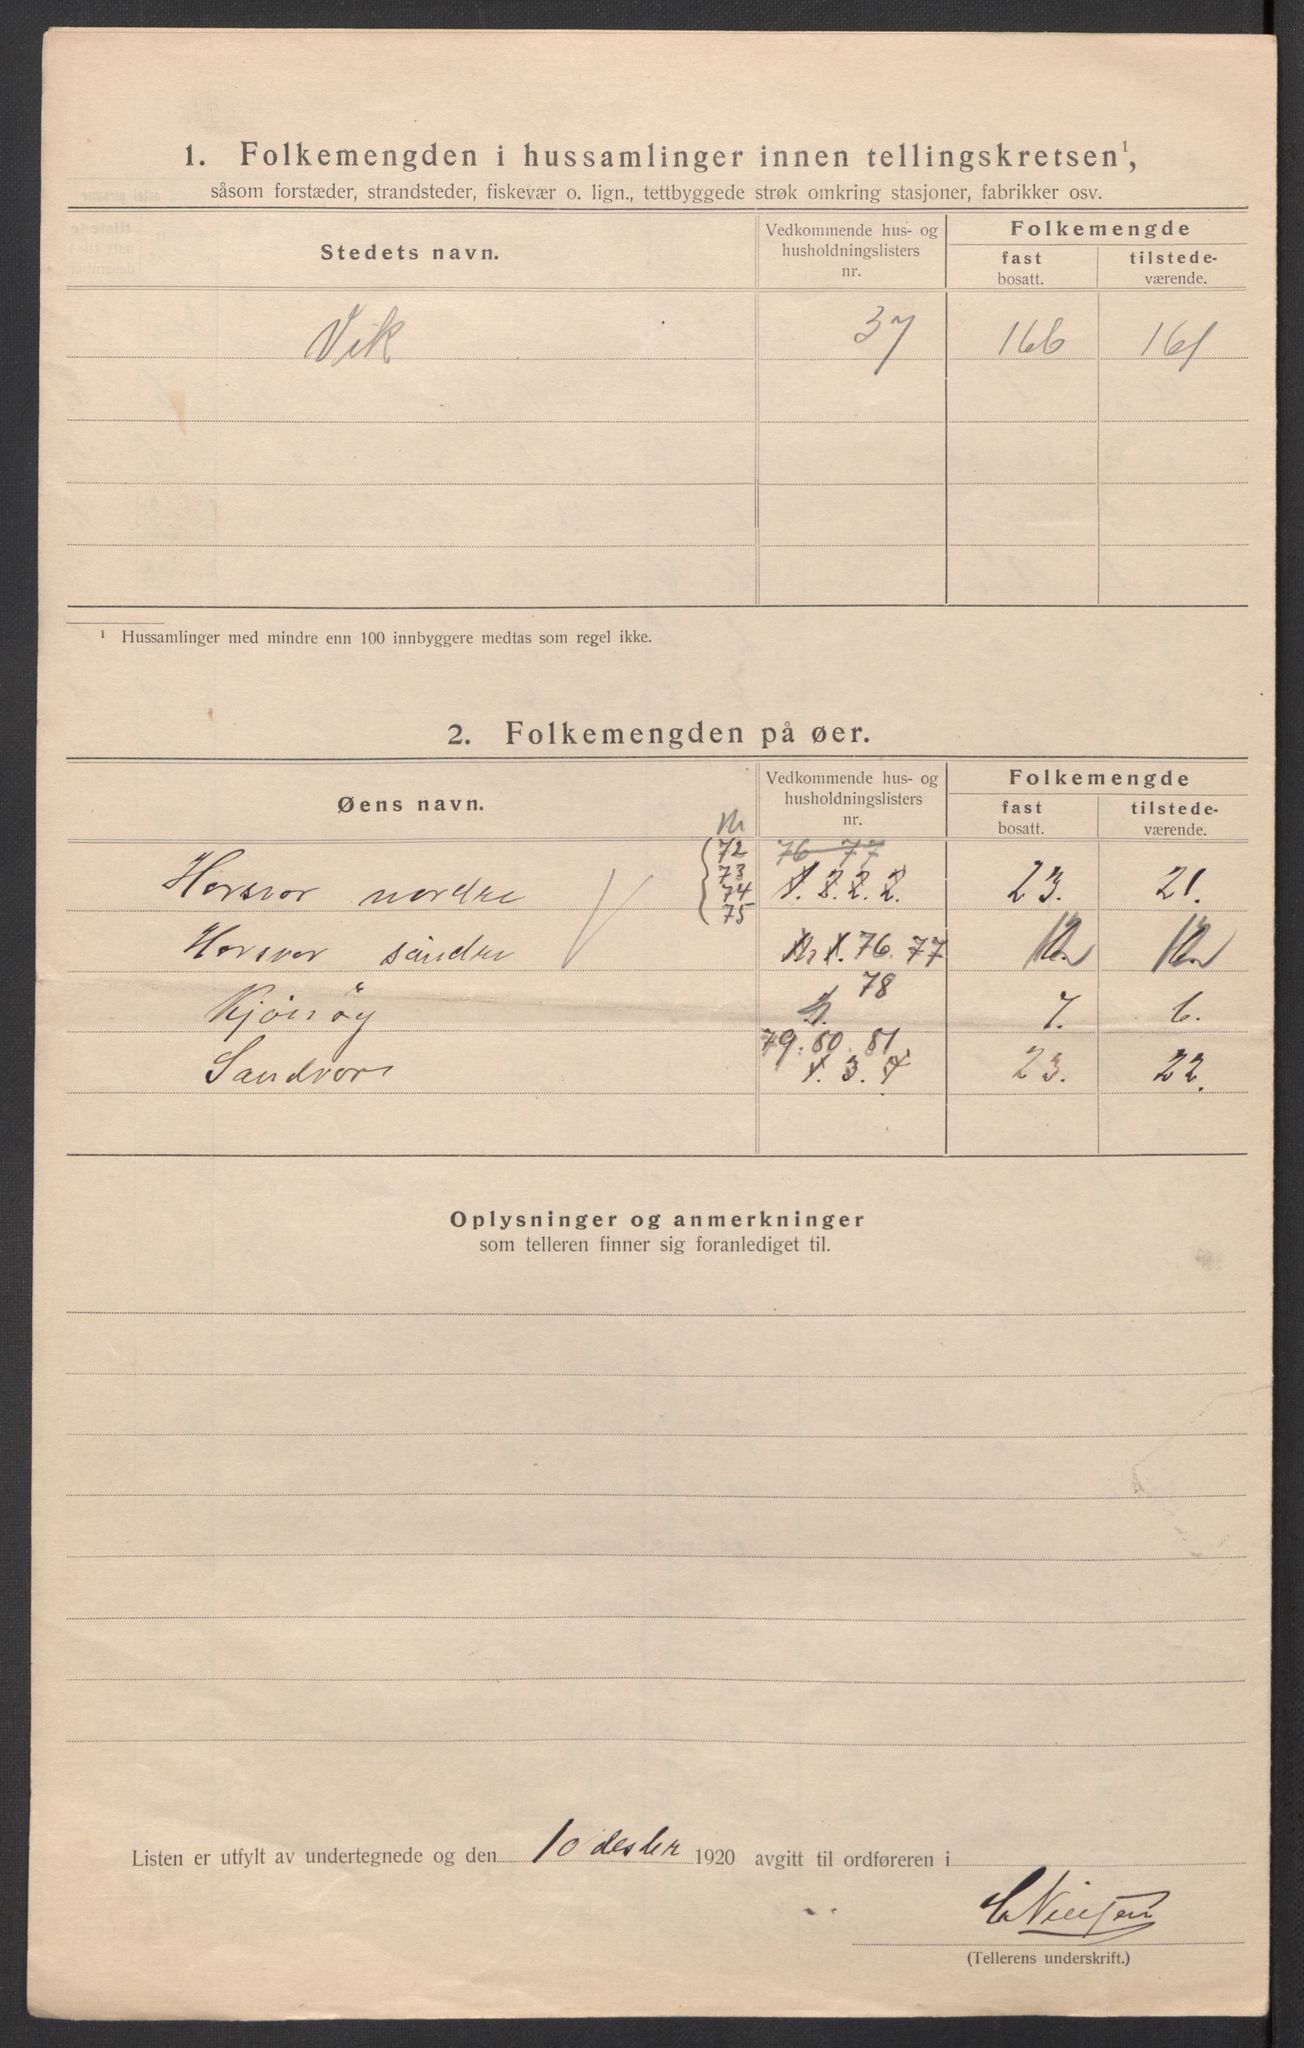 1. Folkemengden i hussamlinger innen tellingskretsen¹,
såsom forstæder, strandsteder, fiskevær o. lign., tettbyggede strøk omkring stasjoner, fabrikker osv.
Stedets navn.
Vedkommende hus- og husholdningslisters nr.
Folkemengde
fast bosatt.
tilstede-værende.
Vik 37 166 161
¹ Hussamlinger med mindre enn 100 innbyggere medtas som regel ikke.
2. Folkemengden på øer.
Øens navn.
Vedkommende hus- og husholdningslisters nr.
Folkemengde
fast bosatt.
tilstede-værende.
Nr
72 76 77
73
Horsvær nordre 74 1. 2. 2. 2. 23. 21.
75
Horsvær söndre Nr 1. 76. 77
78
7. 6.
79. 80. 81
Sandvær 1. 3. 4 23. 22.
Oplysninger og anmerkninger
som telleren finner sig foranlediget til.
Listen er utfylt av undertegnede og den 10 desbr 1920 avgitt til ordføreren i
C. Nielsen
(Tellerens underskrift.)